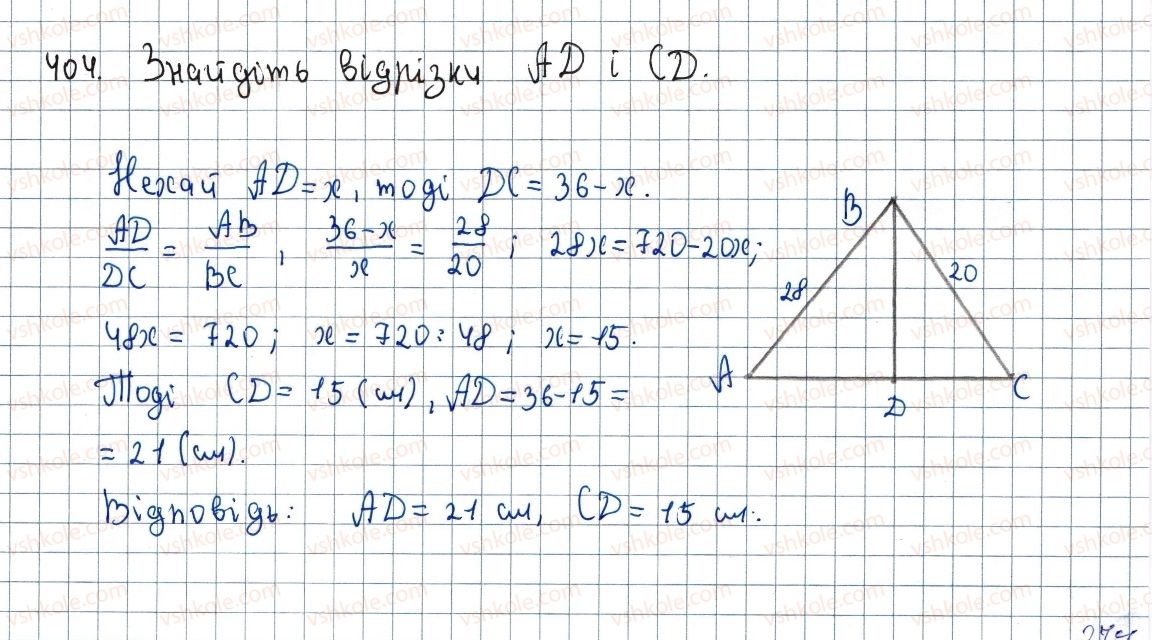 404. Знайдіть відрізки AD і CD.
Нехай AD = x, тоді DC = 36 - x.
AD/DC = AB/BC, (36 - x)/x = 28/20; 28x = 720 - 20x;
48x = 720; x = 720 : 48; x = 15.
Тоді CD = 15 (см), AD = 36 - 15 =
= 21 (см).
Відповідь: AD = 21 см, CD = 15 см.
B
28
20
A
D
C
vshkole.com